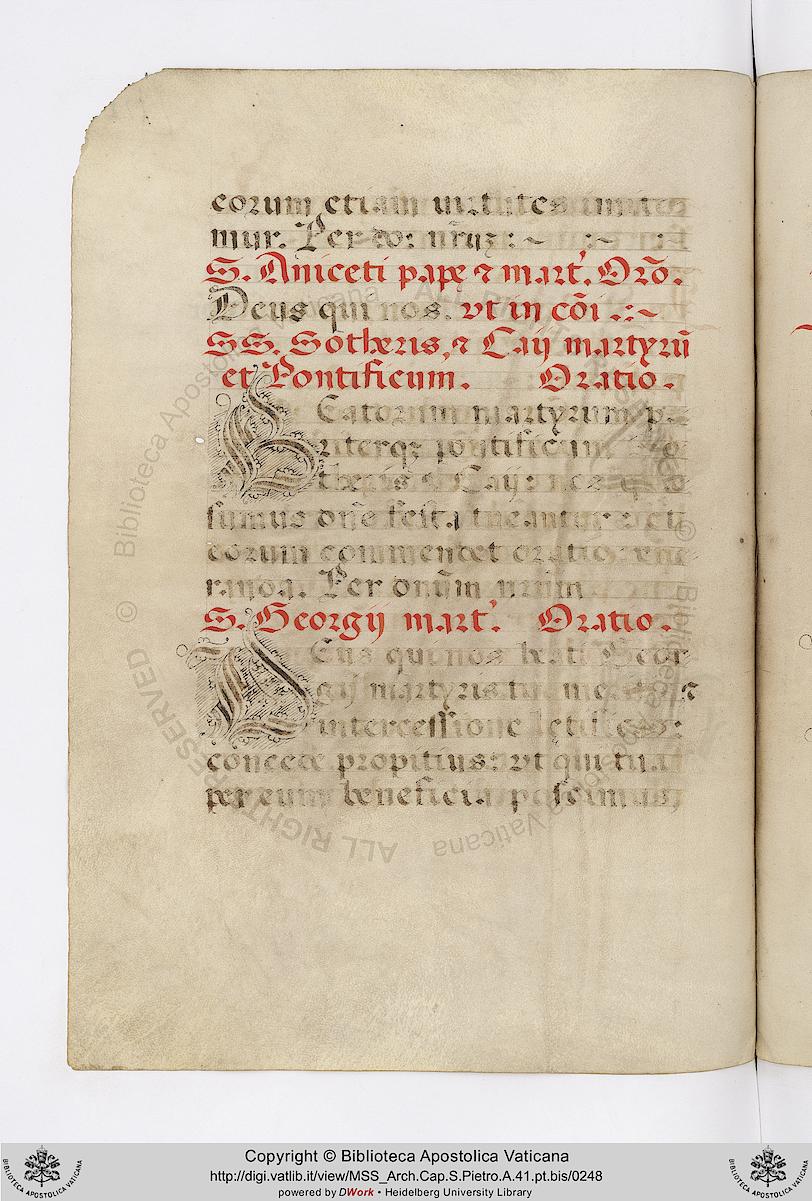 eorum etiam uirtutes imite
mur. Per do: nr̃ȝ: ~ : ~ :
S. Aniceti pape ⁊ mart'. Orõ.
Deus qui nos. vt in cõi .:~
SS. Sotheris, ⁊ Caij martyrũ
et Pontificum. Oratio.
BEatorum martyrum p
riterqȝ pontificum So
theris ⁊ Caij: nos
sumus dñe festa tueantur: ⁊
eorum commendet oratio uene
randa. Per dnm̃ nrũm
S. Georgij mart'. Oratio.
DEus qui nos beati Geor
gij martyris tui meritis ⁊
intercessione letificas:
concede propitius: vt qui tua
per eum beneficia poscimus,
Copyright © Biblioteca Apostolica Vaticana
http://digi.vatlib.it/view/MSS_Arch.Cap.S.Pietro.A.41.pt.bis/0248
powered by DWork • Heidelberg University Library
BIBLIOTECA APOSTOLICA VATICANA
BIBLIOTECA APOSTOLICA VATICANA
© Biblioteca Apostolica Vaticana ALL RIGHTS RESERVED